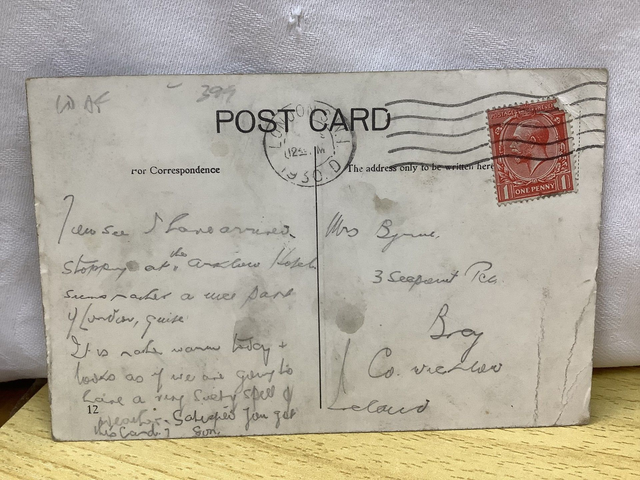 399
POST CARD
LONDON
1930
For Correspondence
The address only to be written here
POSTAGE REVENUE
1 ONE PENNY 1
You see I have arrived
stopping at the Hotel
rather a nice part
of London, quite
It is rather warm today &
looks as if we are going to
have a very spell of
weather. you get
this card Son.
Mrs Byrne,
3 Seapoint Rd
Bray
Co. Wicklow
Ireland
12